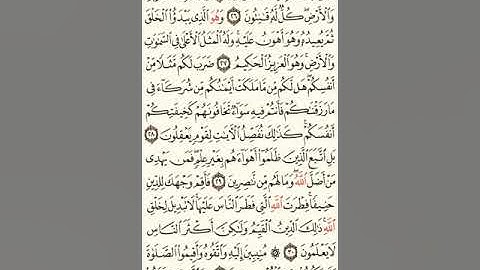 وَالْأَرْضِ كُلٌّ لَّهُ قَانِتُونَ ٢٦ وَهُوَ الَّذِي يَبْدَؤُا الْخَلْقَ
ثُمَّ يُعِيدُهُ وَهُوَ أَهْوَنُ عَلَيْهِ وَلَهُ الْمَثَلُ الْأَعْلَىٰ فِي السَّمَٰوَٰتِ
وَالْأَرْضِ وَهُوَ الْعَزِيزُ الْحَكِيمُ ٢٧ ضَرَبَ لَكُم مَّثَلًا مِّنْ
أَنفُسِكُمْ هَل لَّكُم مِّن مَّا مَلَكَتْ أَيْمَٰنُكُم مِّن شُرَكَاءَ فِي
مَا رَزَقْنَٰكُمْ فَأَنتُمْ فِيهِ سَوَاءٌ تَخَافُونَهُمْ كَخِيفَتِكُمْ
أَنفُسَكُمْ كَذَٰلِكَ نُفَصِّلُ الْآيَٰتِ لِقَوْمٍ يَعْقِلُونَ ٢٨
بَلِ اتَّبَعَ الَّذِينَ ظَلَمُوا أَهْوَاءَهُم بِغَيْرِ عِلْمٍ فَمَن يَهْدِي
مَنْ أَضَلَّ اللَّهُ وَمَا لَهُم مِّن نَّٰصِرِينَ ٢٩ فَأَقِمْ وَجْهَكَ لِلدِّينِ
حَنِيفًا فِطْرَتَ اللَّهِ الَّتِي فَطَرَ النَّاسَ عَلَيْهَا لَا تَبْدِيلَ لِخَلْقِ
اللَّهِ ذَٰلِكَ الدِّينُ الْقَيِّمُ وَلَٰكِنَّ أَكْثَرَ النَّاسِ
لَا يَعْلَمُونَ ٣٠ ۞ مُنِيبِينَ إِلَيْهِ وَاتَّقُوهُ وَأَقِيمُوا الصَّلَوٰةَ